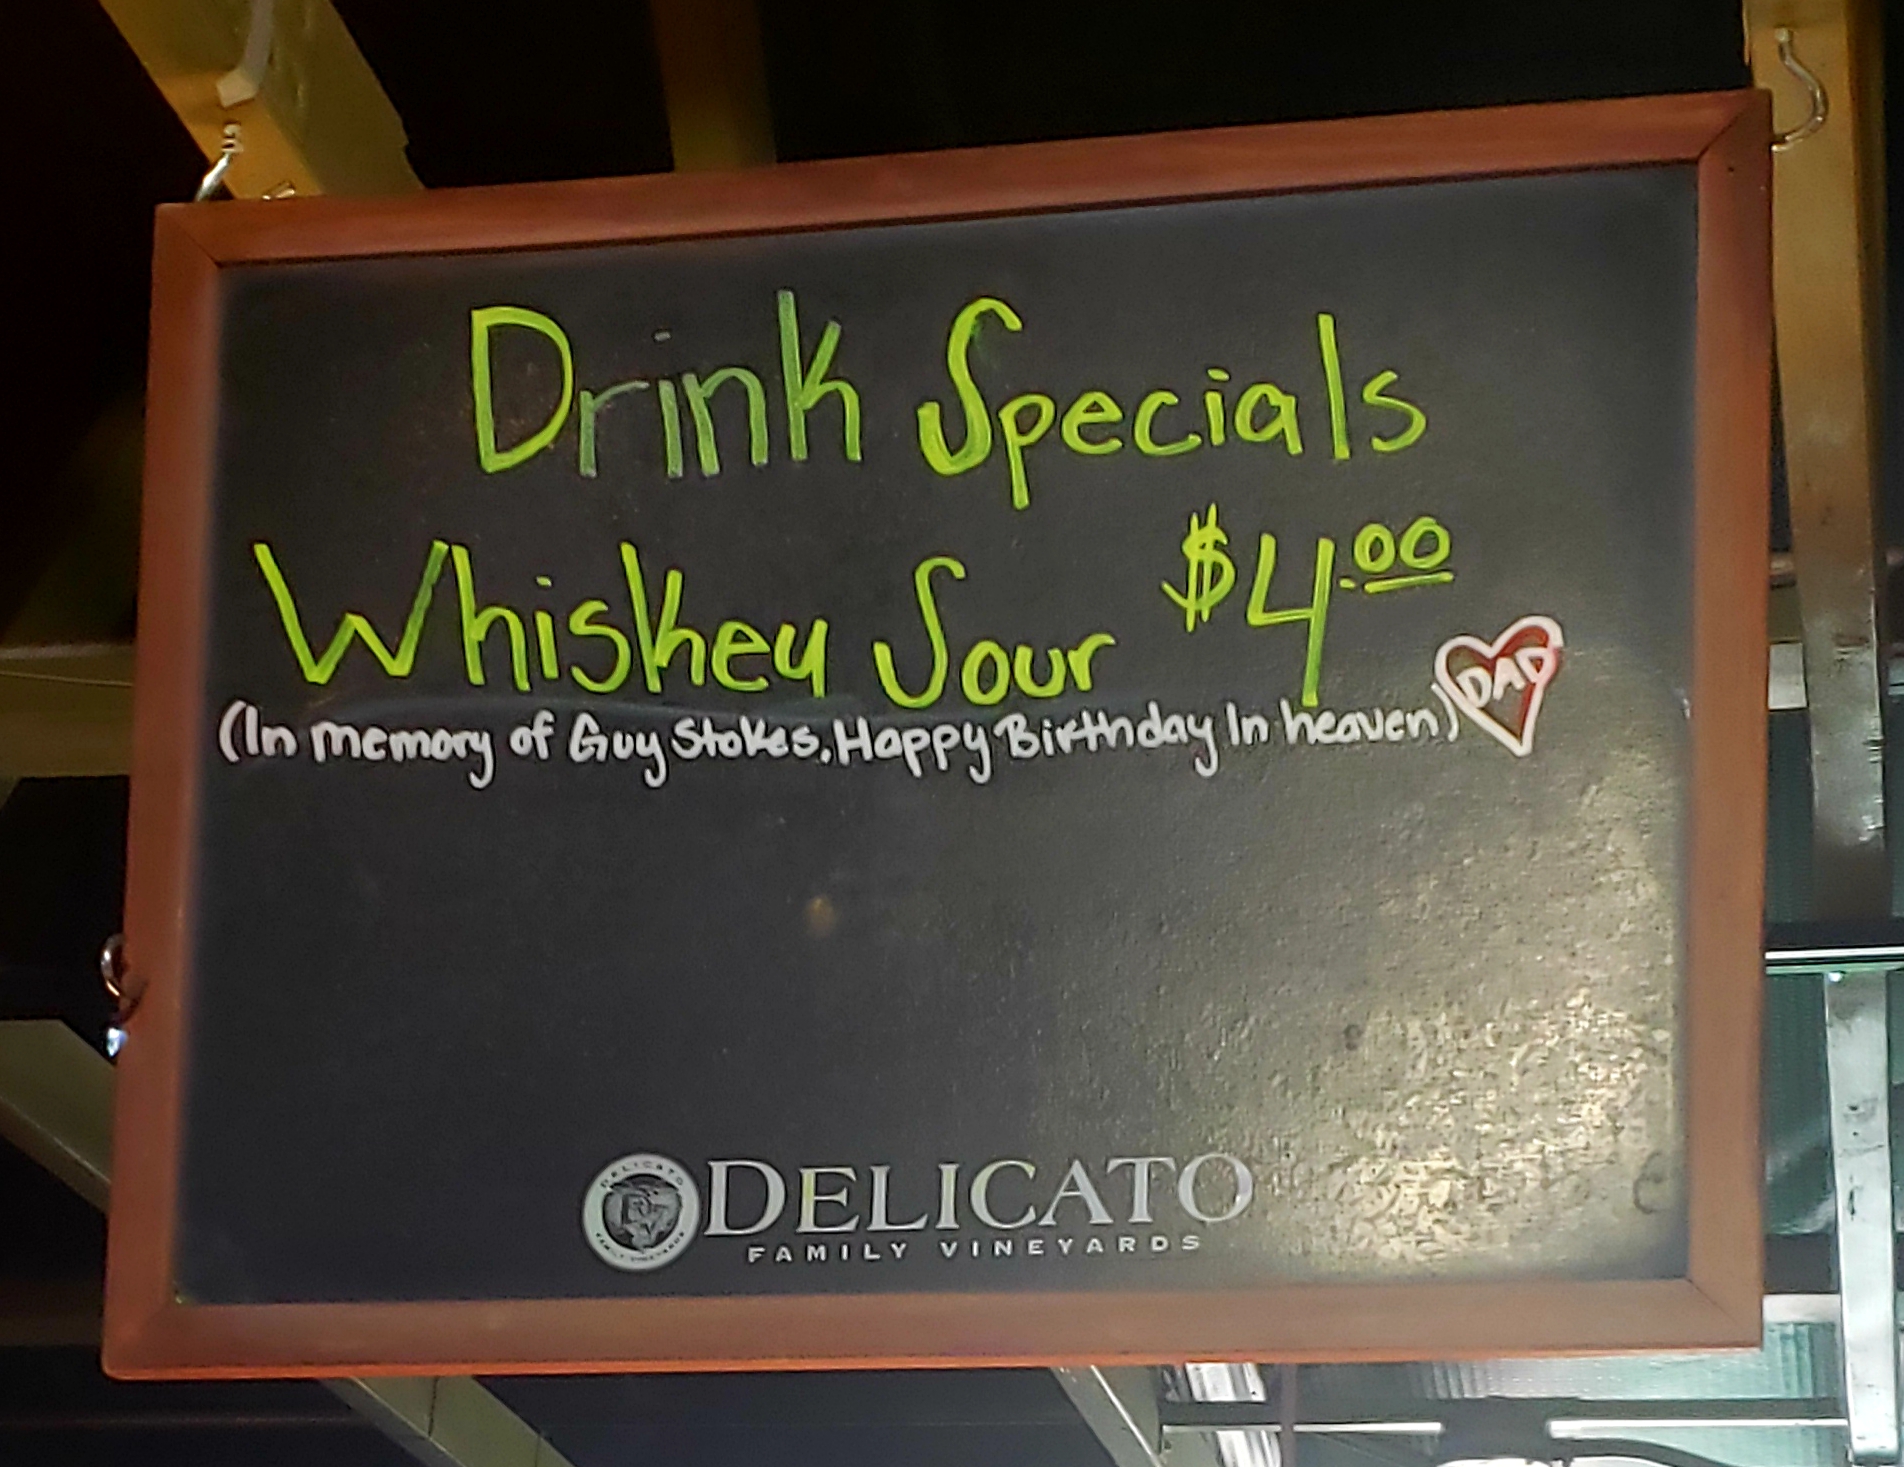 Drink Specials
Whiskey Sour $4.00
(In memory of Guy Stokes. Happy Birthday In heaven) DAD
DELICATO
FAMILY VINEYARDS